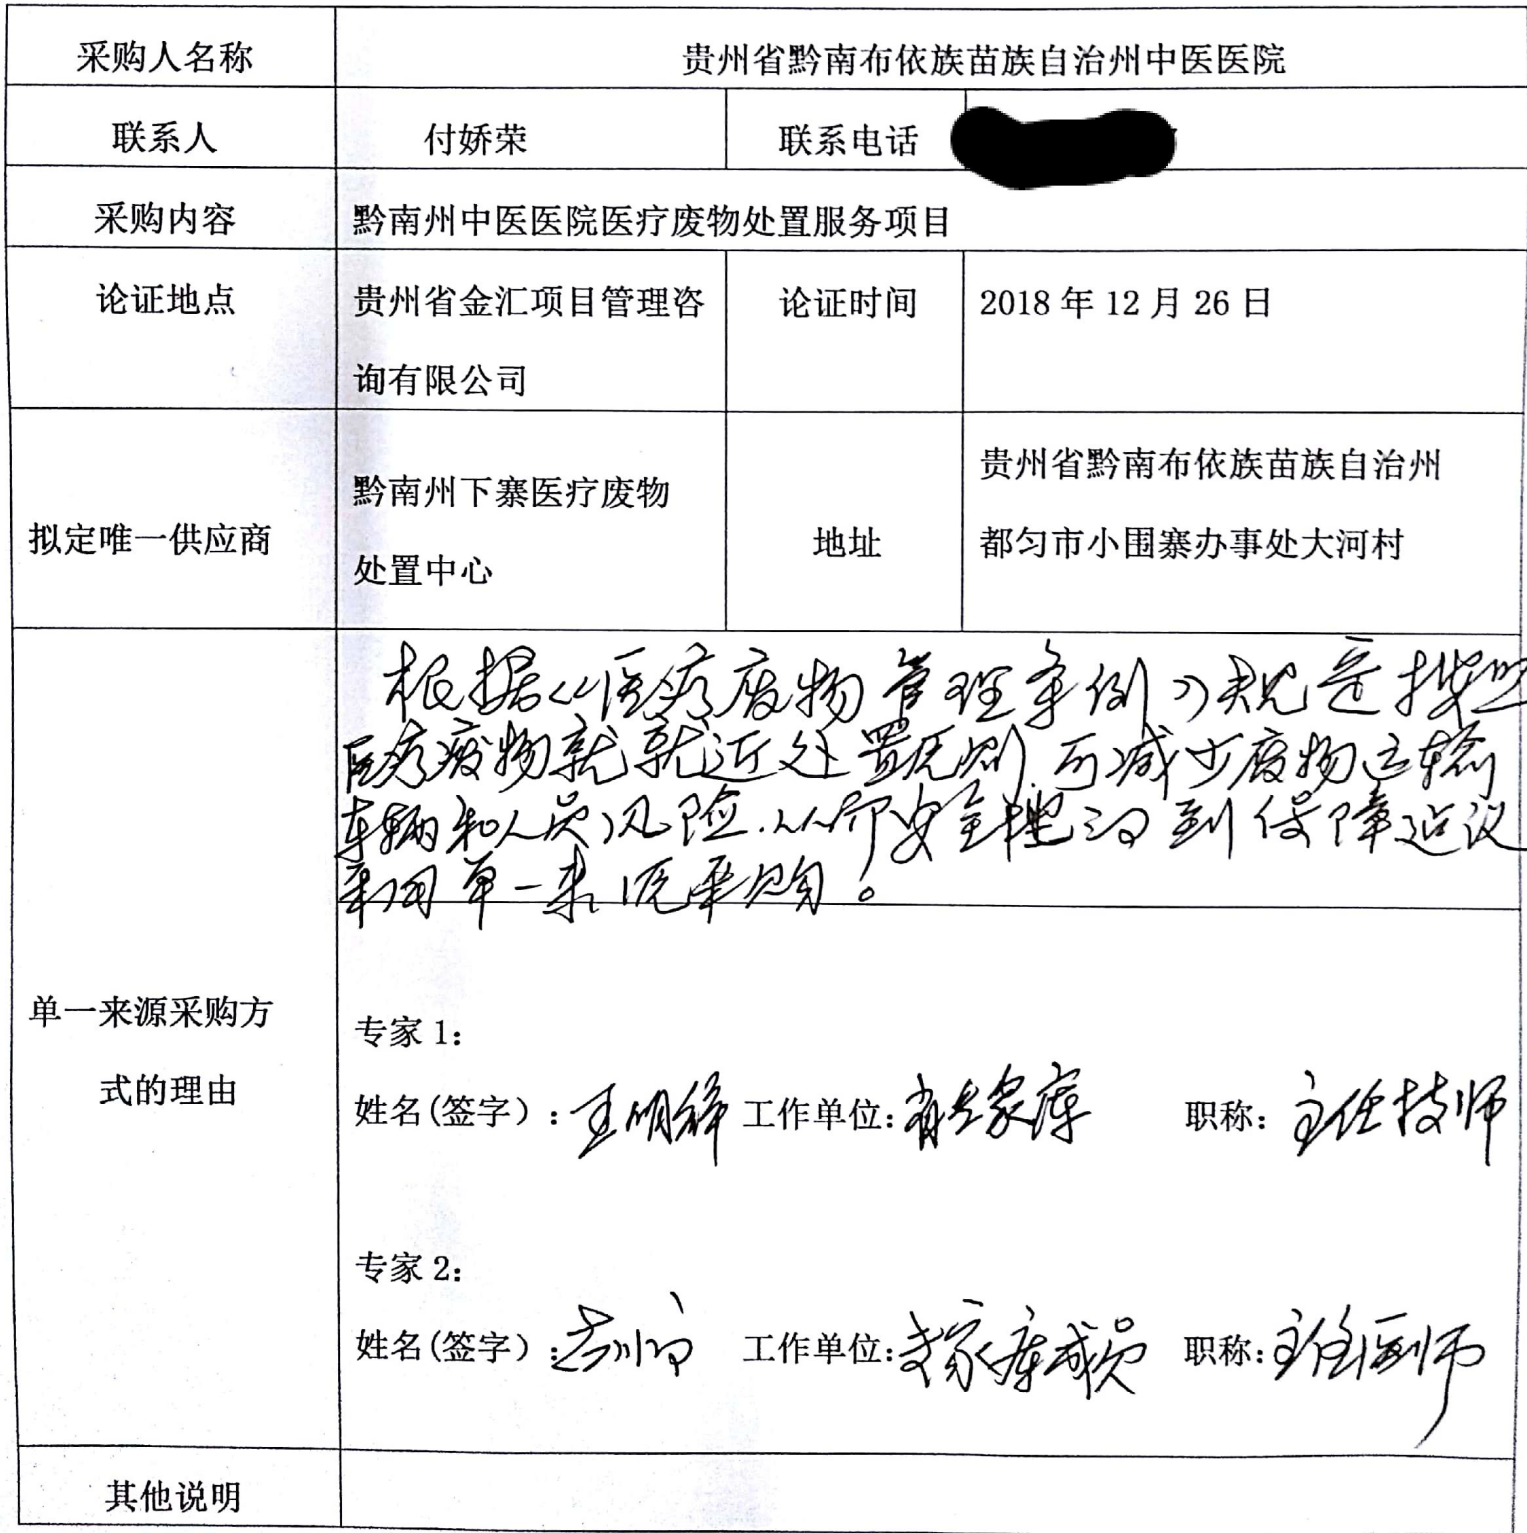 采购人名称 贵州省黔南布依族苗族自治州中医医院
联系人 付娇荣 联系电话
采购内容 黔南州中医医院医疗废物处置服务项目
论证地点 贵州省金汇项目管理咨 论证时间 2018 年 12 月 26 日
询有限公司
拟定唯一供应商 黔南州下寨医疗废物 地址 贵州省黔南布依族苗族自治州
处置中心 都匀市小围寨办事处大河村
根据《医疗废物管理条例》规定按照
医疗废物就就近处置原则 可减少废物运输
车辆和人员风险.从而安全性得到保障建议
采用单一来源采购。
单一来源采购方
式的理由
专家 1:
姓名(签字): 王明 工作单位: 省专家库 职称: 主任技师
专家 2:
姓名(签字): 工作单位: 专家库成员 职称: 主任医师
其他说明